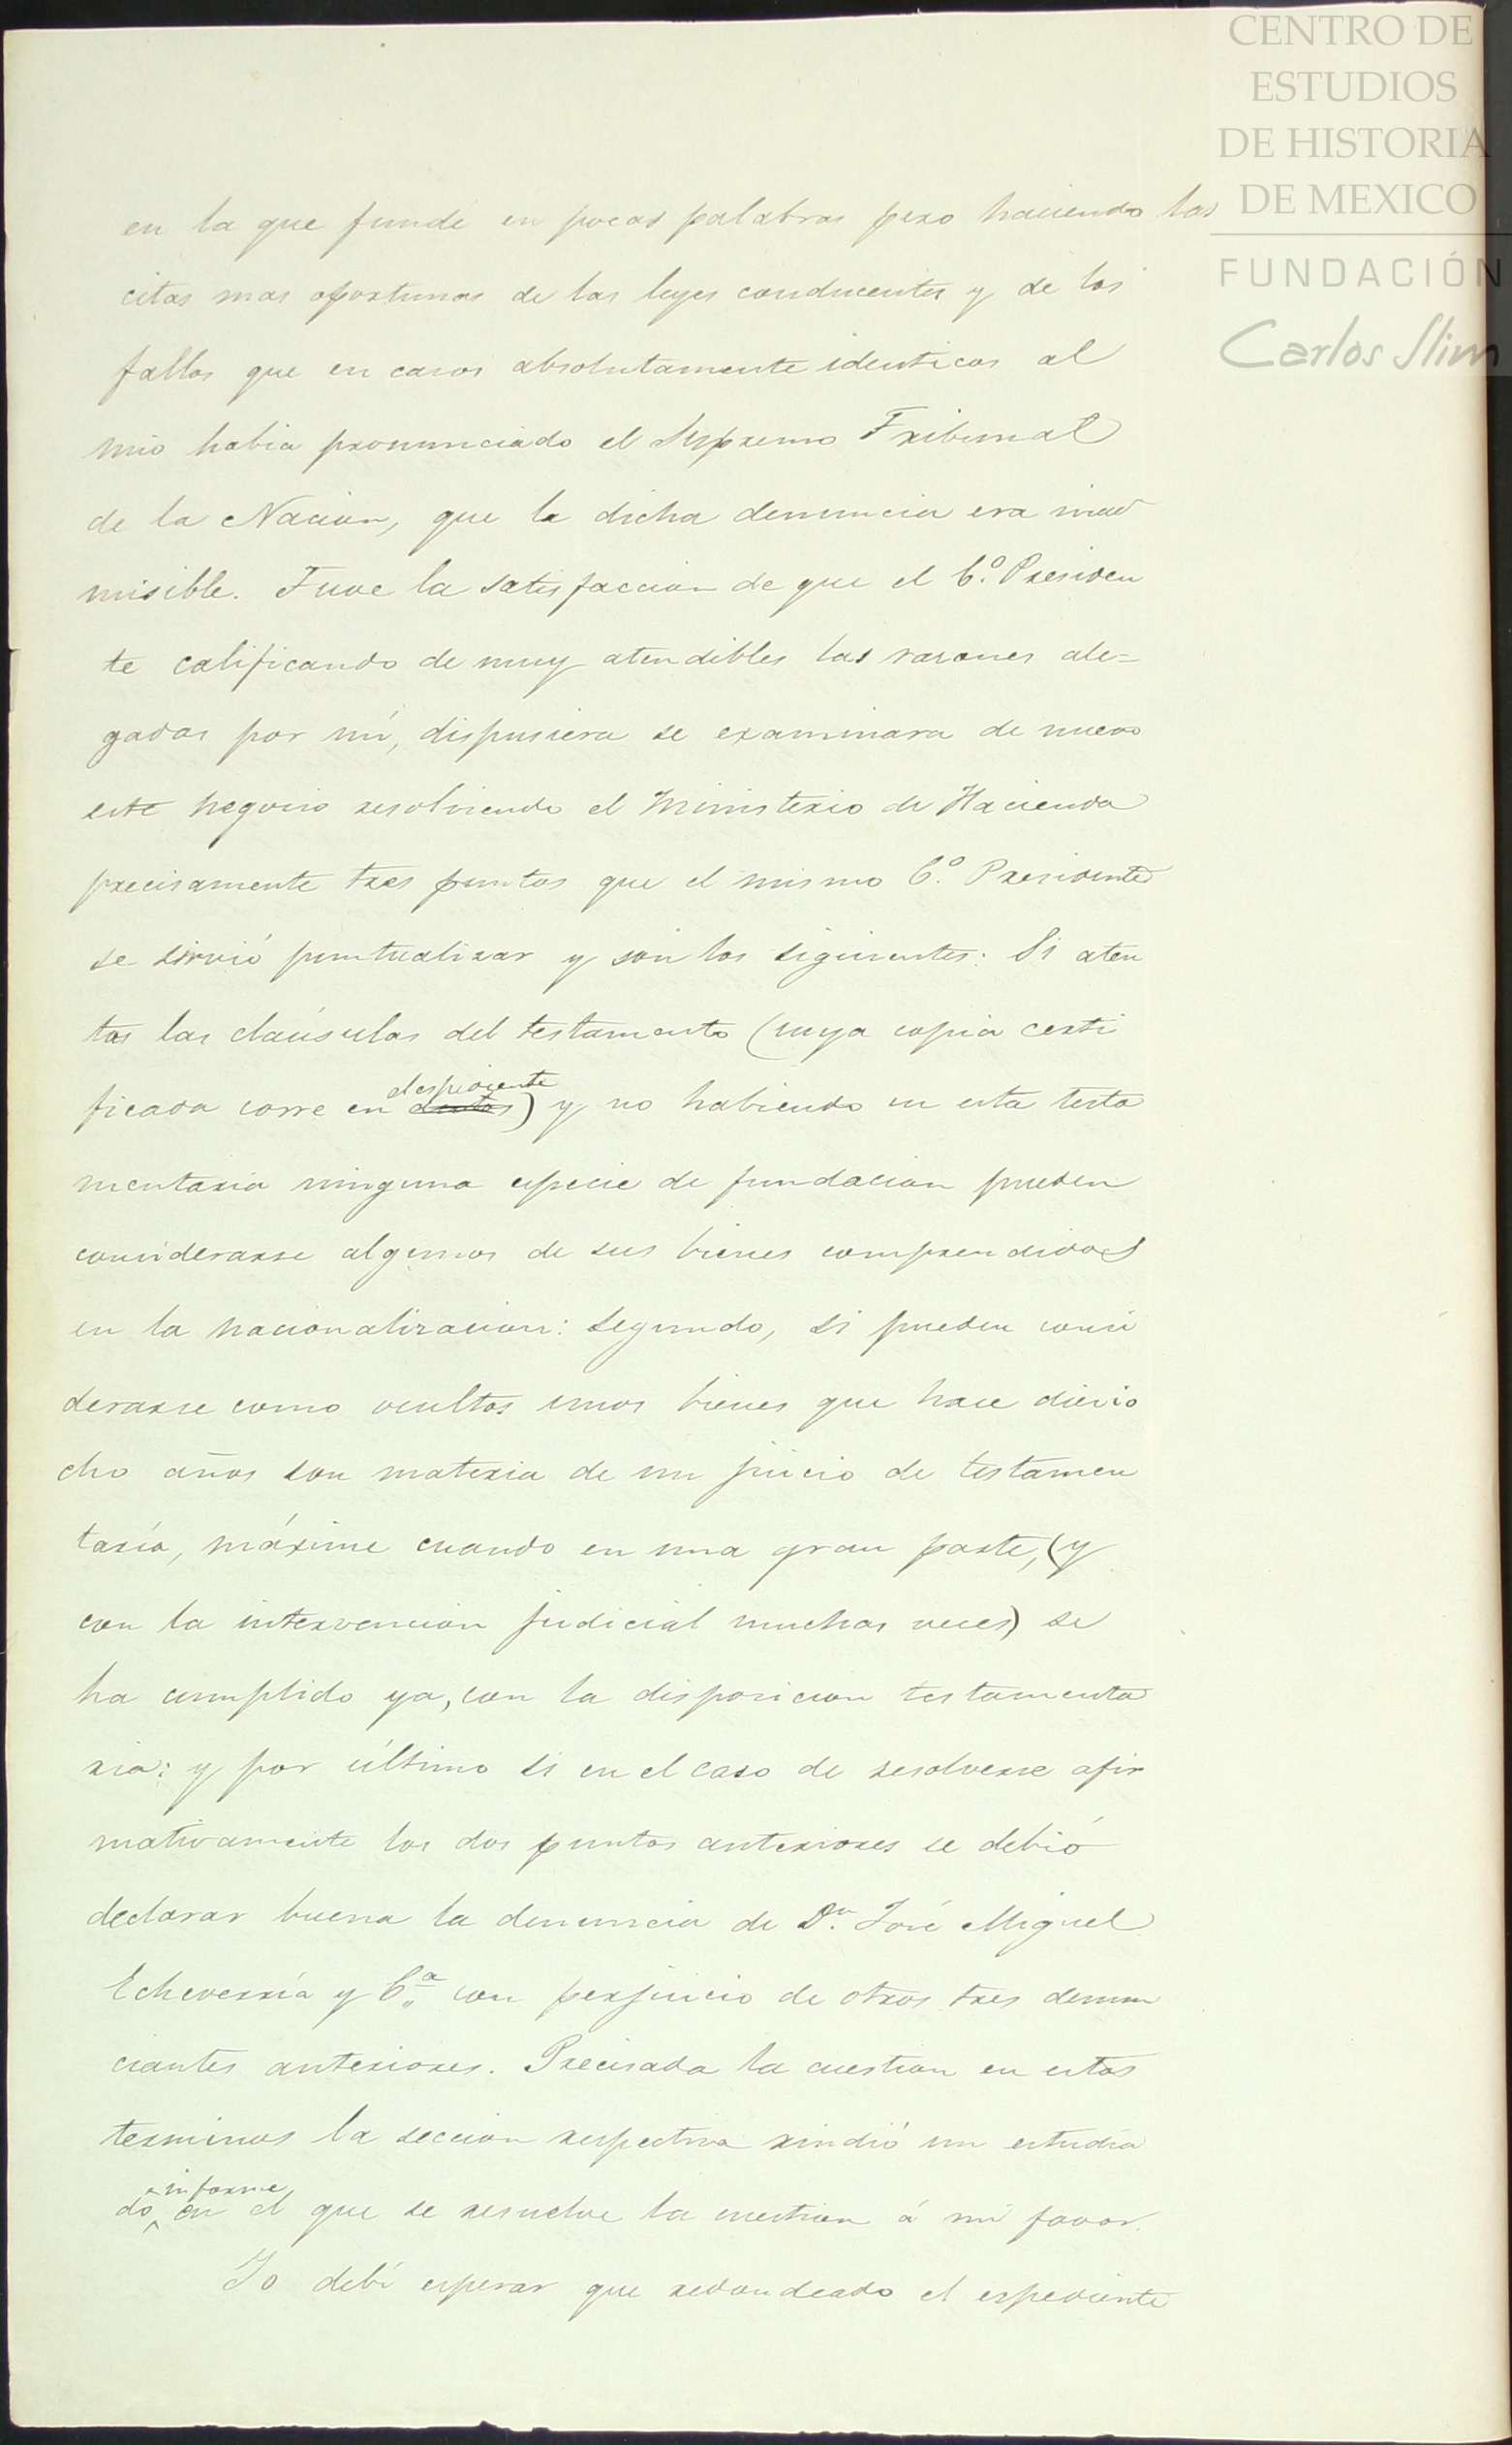 CENTRO DE
ESTUDIOS
DE HISTORIA
DE MEXICO
FUNDACIÓN
Carlos Slim
en la que fundé en pocas palabras pero haciendo las
citas mas oportunas de las leyes conducentes y de los
fallos que en casos absolutamente identicos al
mio habia pronunciado el Supremo Tribunal
de la Nacion, que la dicha denuncia era inad
misible. Tuve la satisfaccion de que el C.º Presiden
te calificando de muy atendibles las razones ale=
gadas por mí, dispusiera se examinara de nuevo
este negocio resolviendo el Ministerio de Hacienda
precisamente tres puntos que el mismo C.º Presidente
se sirvió puntualizar y son los siguientes: Si aten
tas las claúsulas del testamento (cuya copia certi
ficada corre en el espediente) y no habiendo en esta testa
mentaria ninguna especie de fundacion pueden
considerarse algunos de sus bienes comprendidos
en la nacionalizacion: segundo, si pueden consi
derarse como ocultos unos bienes que hace diecio
cho años son materia de un juicio de testamen
taría, máxime cuando en una gran parte, (y
con la intervencion judicial muchas veces) se
ha cumplido ya, con la disposicion testamenta
ria: y por último si en el caso de resolverse afir
mativamente los dos puntos anteriores se debió
declarar buena la denuncia de Dn. José Miguel
Echeverría y Cª con perjuicio de otros tres denun
ciantes anteriores. Precisada la cuestion en estos
terminos la seccion respectiva rindió un estudia
do informe, en el que se resuelve la cuestion á mi favor.
Yo debí esperar que redondeado el espediente